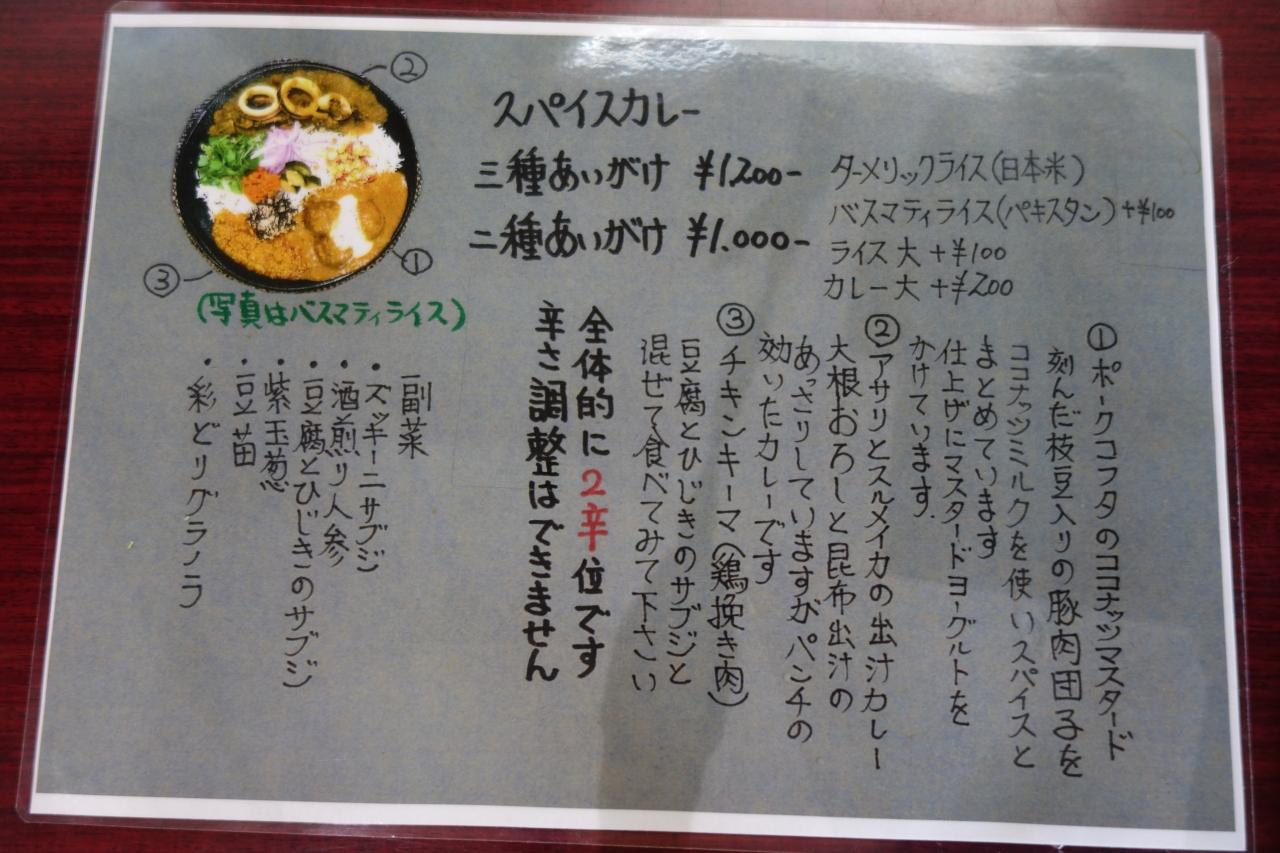 ②
①
③
(写真はバスマティライス)
スパイスカレー
三種あいがけ ¥1,200-
二種あいがけ ¥1.000-
ターメリックライス(日本米)
バスマティライス(パキスタン)+¥100
ライス大 +¥100
カレー大 +¥200
①ポークコフタのココナッツマスタード
刻んだ枝豆入りの豚肉団子を
ココナッツミルクを使いスパイスと
まとめています
仕上げにマスタードヨーグルトを
かけています.
②アサリとスルメイカの出汁カレー
大根おろしと昆布出汁の
あっさりしていますがパンチの
効いたカレーです
③チキンキーマ(鶏挽き肉)
豆腐とひじきのサブジと
混ぜて食べてみて下さい
全体的に2辛位です
辛さ調整はできません
副菜
・ズッキーニサブジ
・酒煎り人参
・豆腐とひじきのサブジ
・紫玉葱
・豆苗
・彩どりグラノラ